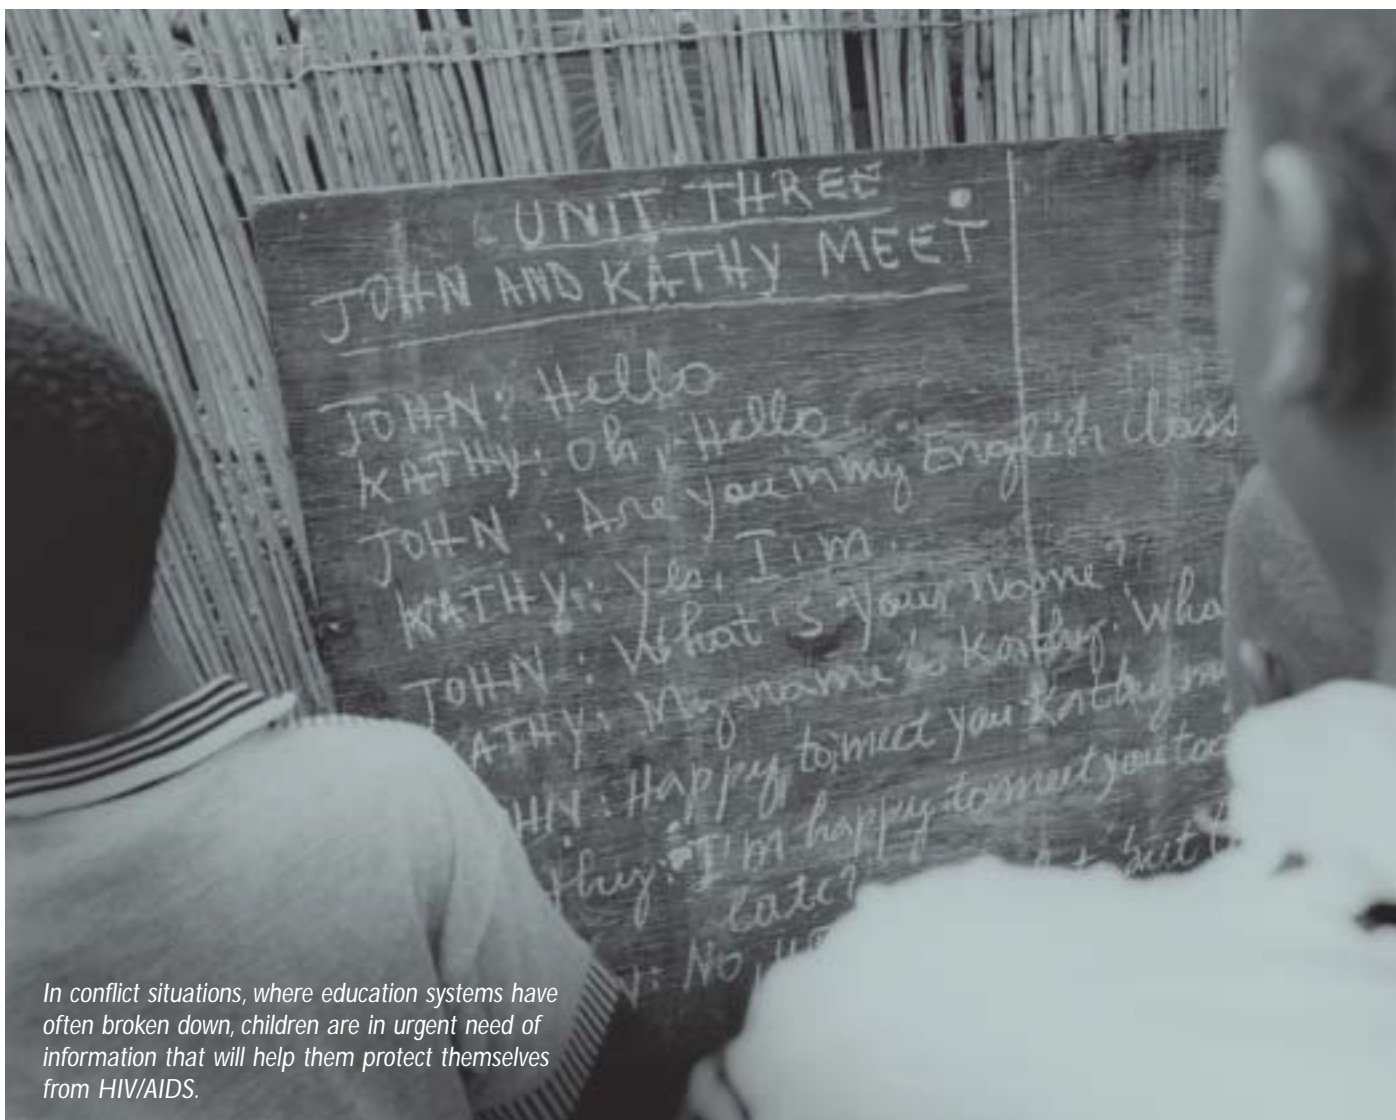 UNIT THREE
JOHN AND KATHY MEET
JOHN: Hello
KATHY: Oh, Hello
JOHN : Are you in my English class
KATHY: Yes, I'm.
JOHN : What's your name?
KATHY: My name is Kathy. Wha
HN: Happy to meet you Kathy m
thy: I'm happy to meet you too
late?
N: No, but
In conflict situations, where education systems have
often broken down, children are in urgent need of
information that will help them protect themselves
from HIV/AIDS.